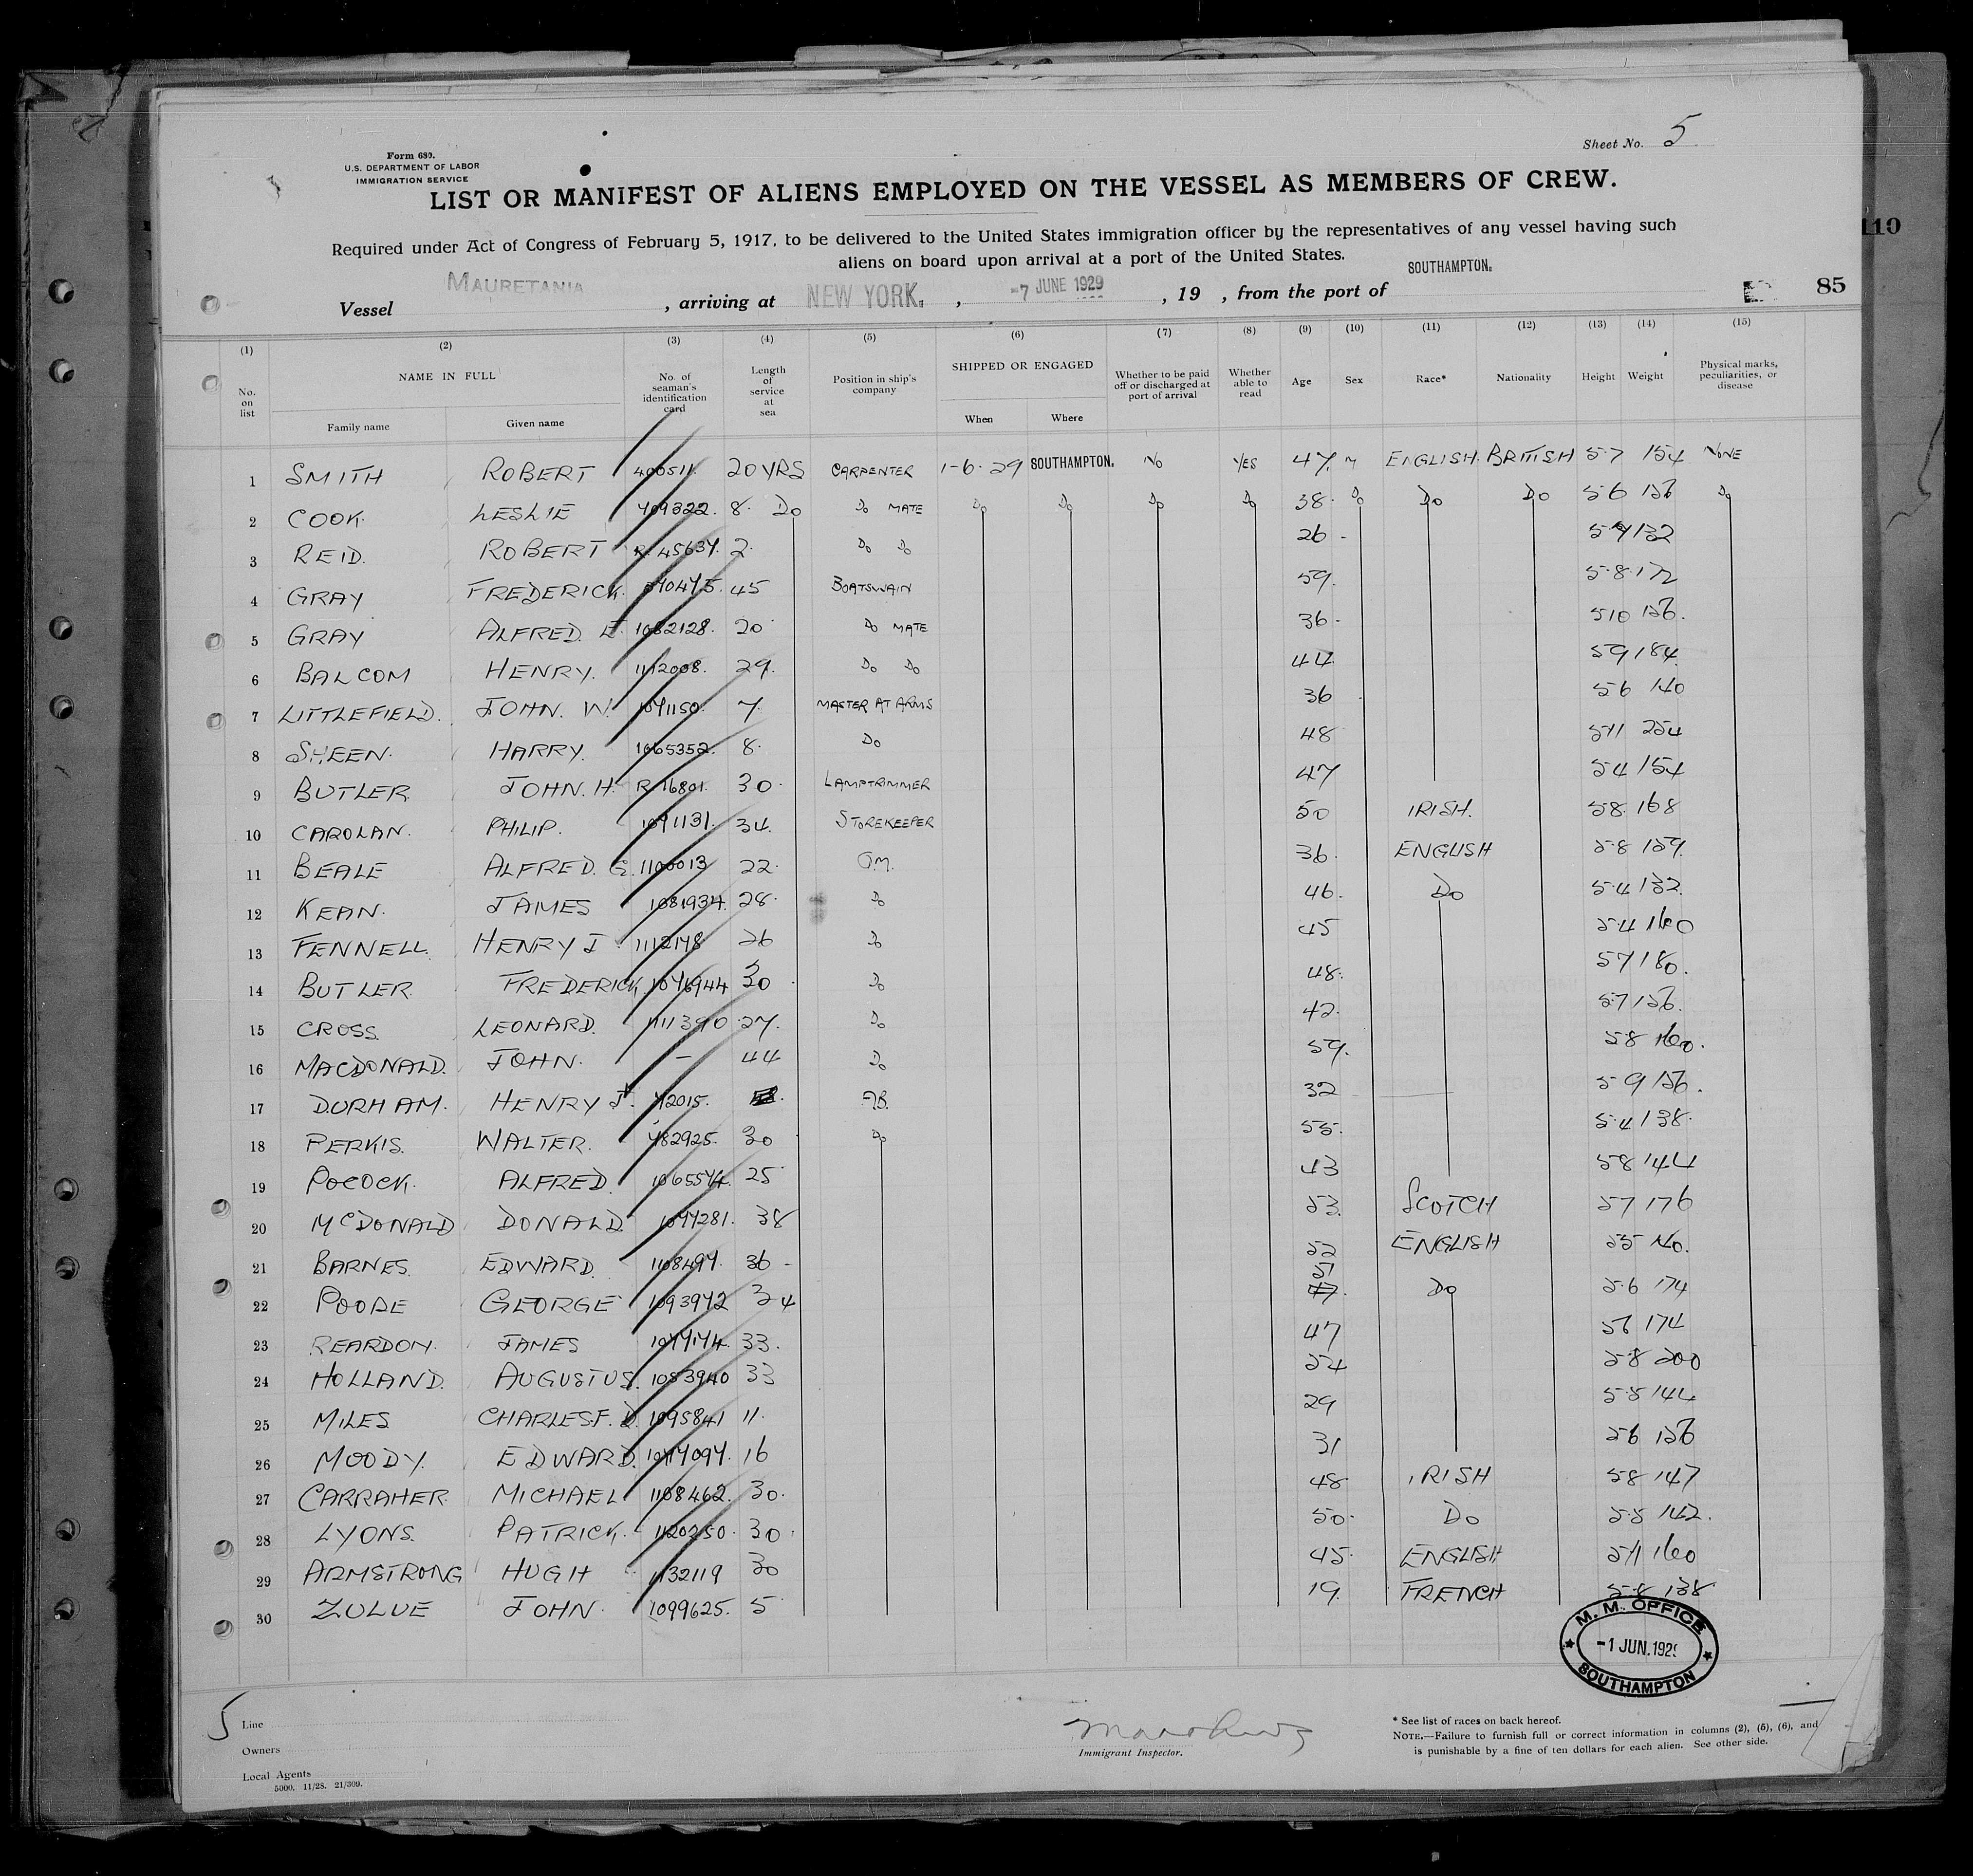 Sheet No. 5
Form 680.
U.S. DEPARTMENT OF LABOR
IMMIGRATION SERVICE
LIST OR MANIFEST OF ALIENS EMPLOYED ON THE VESSEL AS MEMBERS OF CREW.
110
Required under Act of Congress of February 5, 1917, to be delivered to the United States immigration officer by the representatives of any vessel having such
aliens on board upon arrival at a port of the United States.
Vessel MAURETANIA, arriving at NEW YORK., -7 JUNE 1929, 19 , from the port of SOUTHAMPTON. 85
(1) (2) (3) (4) (5) (6) (7) (8) (9) (10) (11) (12) (13) (14) (15)
No. on list NAME IN FULL Family name Given name No. of seaman's identification card Length of service at sea Position in ship's company SHIPPED OR ENGAGED When Where Whether to be paid off or discharged at port of arrival Whether able to read Age Sex Race* Nationality Height Weight Physical marks, peculiarities, or disease
1 SMITH ROBERT 400511. 20 YRS CARPENTER 1-6-29 SOUTHAMPTON. NO YES 47. M ENGLISH. BRITISH 5·7 154 NONE
2 COOK. LESLIE 409322. 8. Do Do MATE Do Do Do Do 38. Do Do Do 5·6 126 Do
3 REID. ROBERT R. 45634. 2. Do Do 26 - 132
4 GRAY FREDERICK. 45 BOATSWAIN 59. 5·8 172
5 GRAY ALFRED. E. 1082128. 20 Do MATE 36 - 510 126.
6 BALCOM HENRY. 1112008. 29. Do Do 44 59 184
7 LITTLEFIELD. JOHN. W. 7. MASTER AT ARMS 36 56 140
8 SHEEN. HARRY. 1065352. 8. Do 48 511 224
9 BUTLER JOHN. H. R 16801. 30. LAMPTRIMMER 47 54 154
10 CAROLAN. PHILIP. 34. STOREKEEPER 50 IRISH. 58 168
11 BEALE ALFRED. G. 1100013 22. Q.M. 36. ENGLISH 58 129.
12 KEAN. JAMES 1081934. 28. Do 46. Do 5·4 132.
13 FENNELL. HENRY J. 1112148 26 Do 45 5·4 160
14 BUTLER. FREDERICK. 30 Do 48. 57 180.
15 CROSS. LEONARD. 1111390 27. Do 42. 5·7 126.
16 MACDONALD. JOHN. - 44 Do 59. 58 160.
17 DURHAM. HENRY J. A.B. 32 59 126.
18 PERKIS. WALTER. 30 Do 55. 5·4 138.
19 POCOCK. ALFRED. 25 43 58 144
20 McDONALD DONALD. 38 53. SCOTCH 57 176
21 BARNES. EDWARD. 36 - 52 ENGLISH 55 140.
22 POODE GEORGE 34 51 Do 5·6 174
23 REARDON. JAMES 33. 47 56 174
24 HOLLAND. AUGUSTUS. 1053940 33 54 58 200
25 MILES CHARLES.F. D. 1095841 11. 29 5·8 144
26 MOODY. EDWARD. 16 31 56 126
27 CARRAHER. MICHAEL 1108462. 30. 48 IRISH 58 147
28 LYONS. PATRICK. 1120250. 30. 50. Do 5·8 142.
29 ARMSTRONG HUGH 1132119 30 45. ENGLISH 511 160
30 ZULUE JOHN. 1099625. 5 19. FRENCH 5·8 138
M. M. OFFICE
-1 JUN. 1929
SOUTHAMPTON
5
Line
Owners
Local Agents
5000. 11/28. 21/309.
Immigrant Inspector.
* See list of races on back hereof.
NOTE.—Failure to furnish full or correct information in columns (2), (5), (6), and
is punishable by a fine of ten dollars for each alien. See other side.